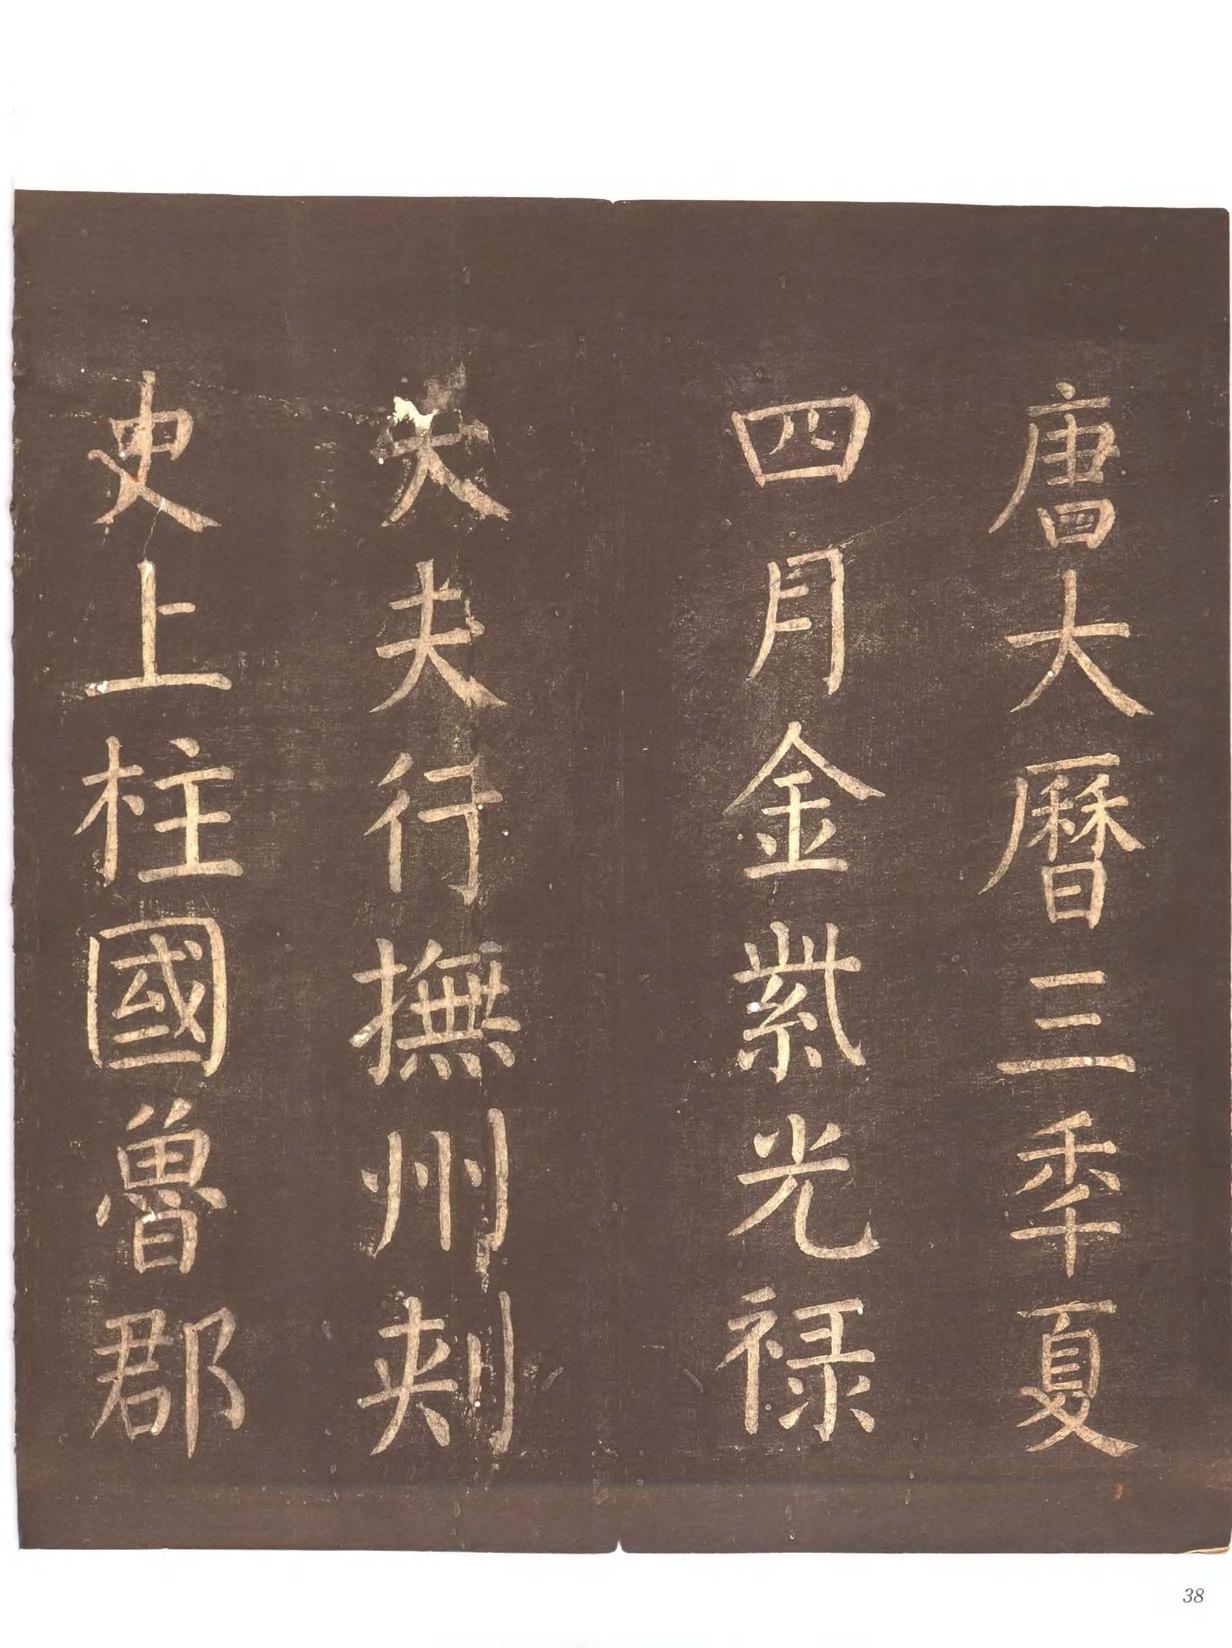 唐大曆三秊夏
四月金紫光禄
大夫行撫州刾
史上柱國魯郡
38